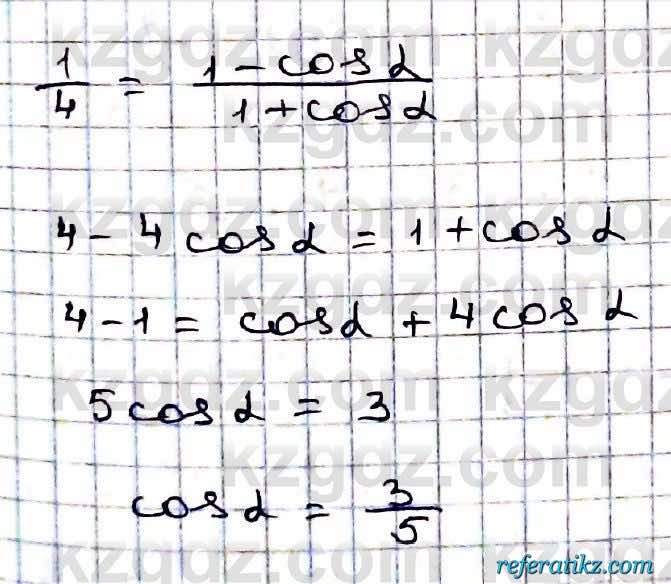 1/4 = (1 - cos α)/(1 + cos α)
4 - 4 cos α = 1 + cos α
4 - 1 = cos α + 4 cos α
5 cos α = 3
cos α = 3/5
kzgdz.com
referatikz.com